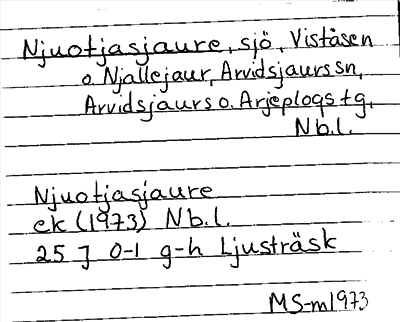 Njuotjasjaure, sjö, Viståsen
o. Njallejaur, Arvidsjaurs sn,
Arvidsjaurs o. Arjeplogs tg.
Nb.l.
Njuotjasjaure
ek (1973) Nb.l.
25 J 0-1 g-h Ljusträsk
MS-m1973